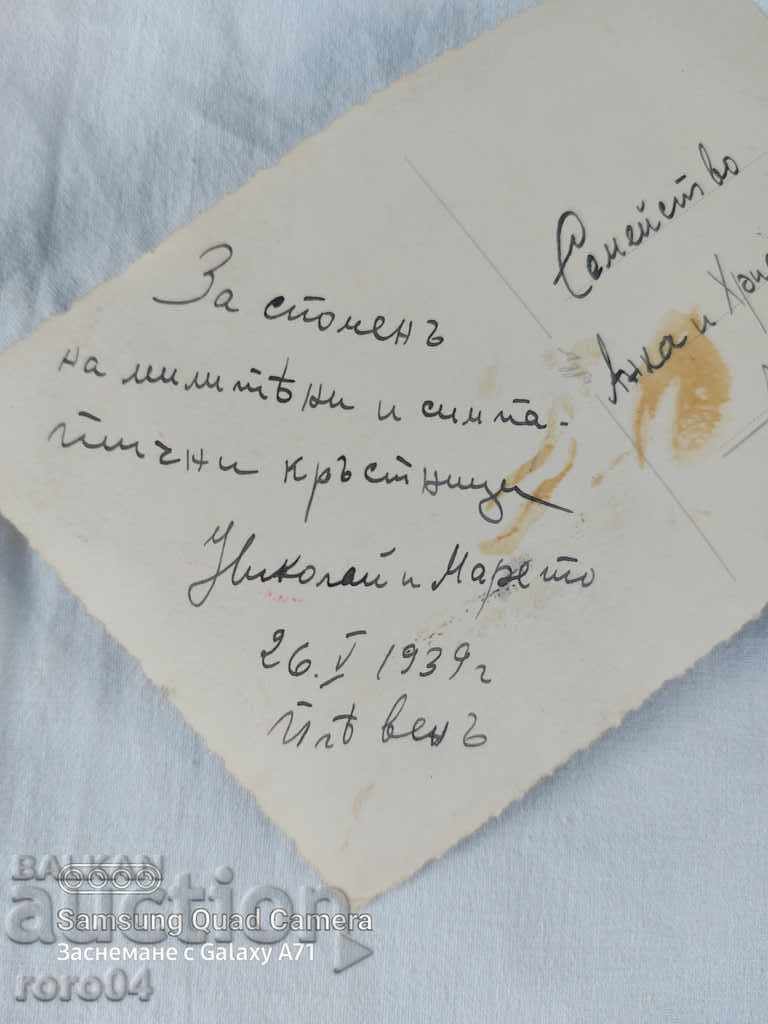 За споменъ
на милитѣни и симпа-
тични кръстници
Николай и Марето
26.V 1939 г
Плѣвенъ
Семейство
Анка и
BALKAN
auction
Samsung Quad Camera
Заснемане с Galaxy A71
roro04